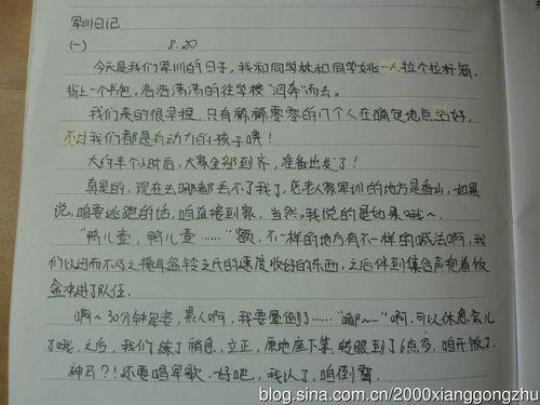 军训日记
(一) 8.20
今天是我们军训的日子,我和同学林和同学姚一人拉个拉杆箱,
背上一个书包,浩浩荡荡的往学校"迈奔"而去。
我们来的很早捏,只有稀稀零零的几个人在确定地点站好,
不过我们都是有动力的孩子噢!
大约半个小时后,大家全部到齐,准备出发了!
真是的,现在去哪都丢不了我了,老人家军训的地方是香山,如果
说,咱要逃跑的话,咱直接到家,当然,我说的是如果哦~
"鸭儿壹,鸭儿壹……"额,不一样的地方有不一样的喊法啊,我
们以迅雷不及掩耳盗铃之氏的速度收好的东西,之后伴到集合声抱着饭
盒冲进了队伍.
啊~30分钟军姿,累人啊,我要晕倒了……"嘟~~"啊,可以休息会儿
了哦,之后,我们练了稍息,立正,原地座下等 转眼到了6点多,咱开饭了.
神马?!还要唱军歌.好吧,我认了,咱倒霉.
blog.sina.com.cn/2000xianggongzhu